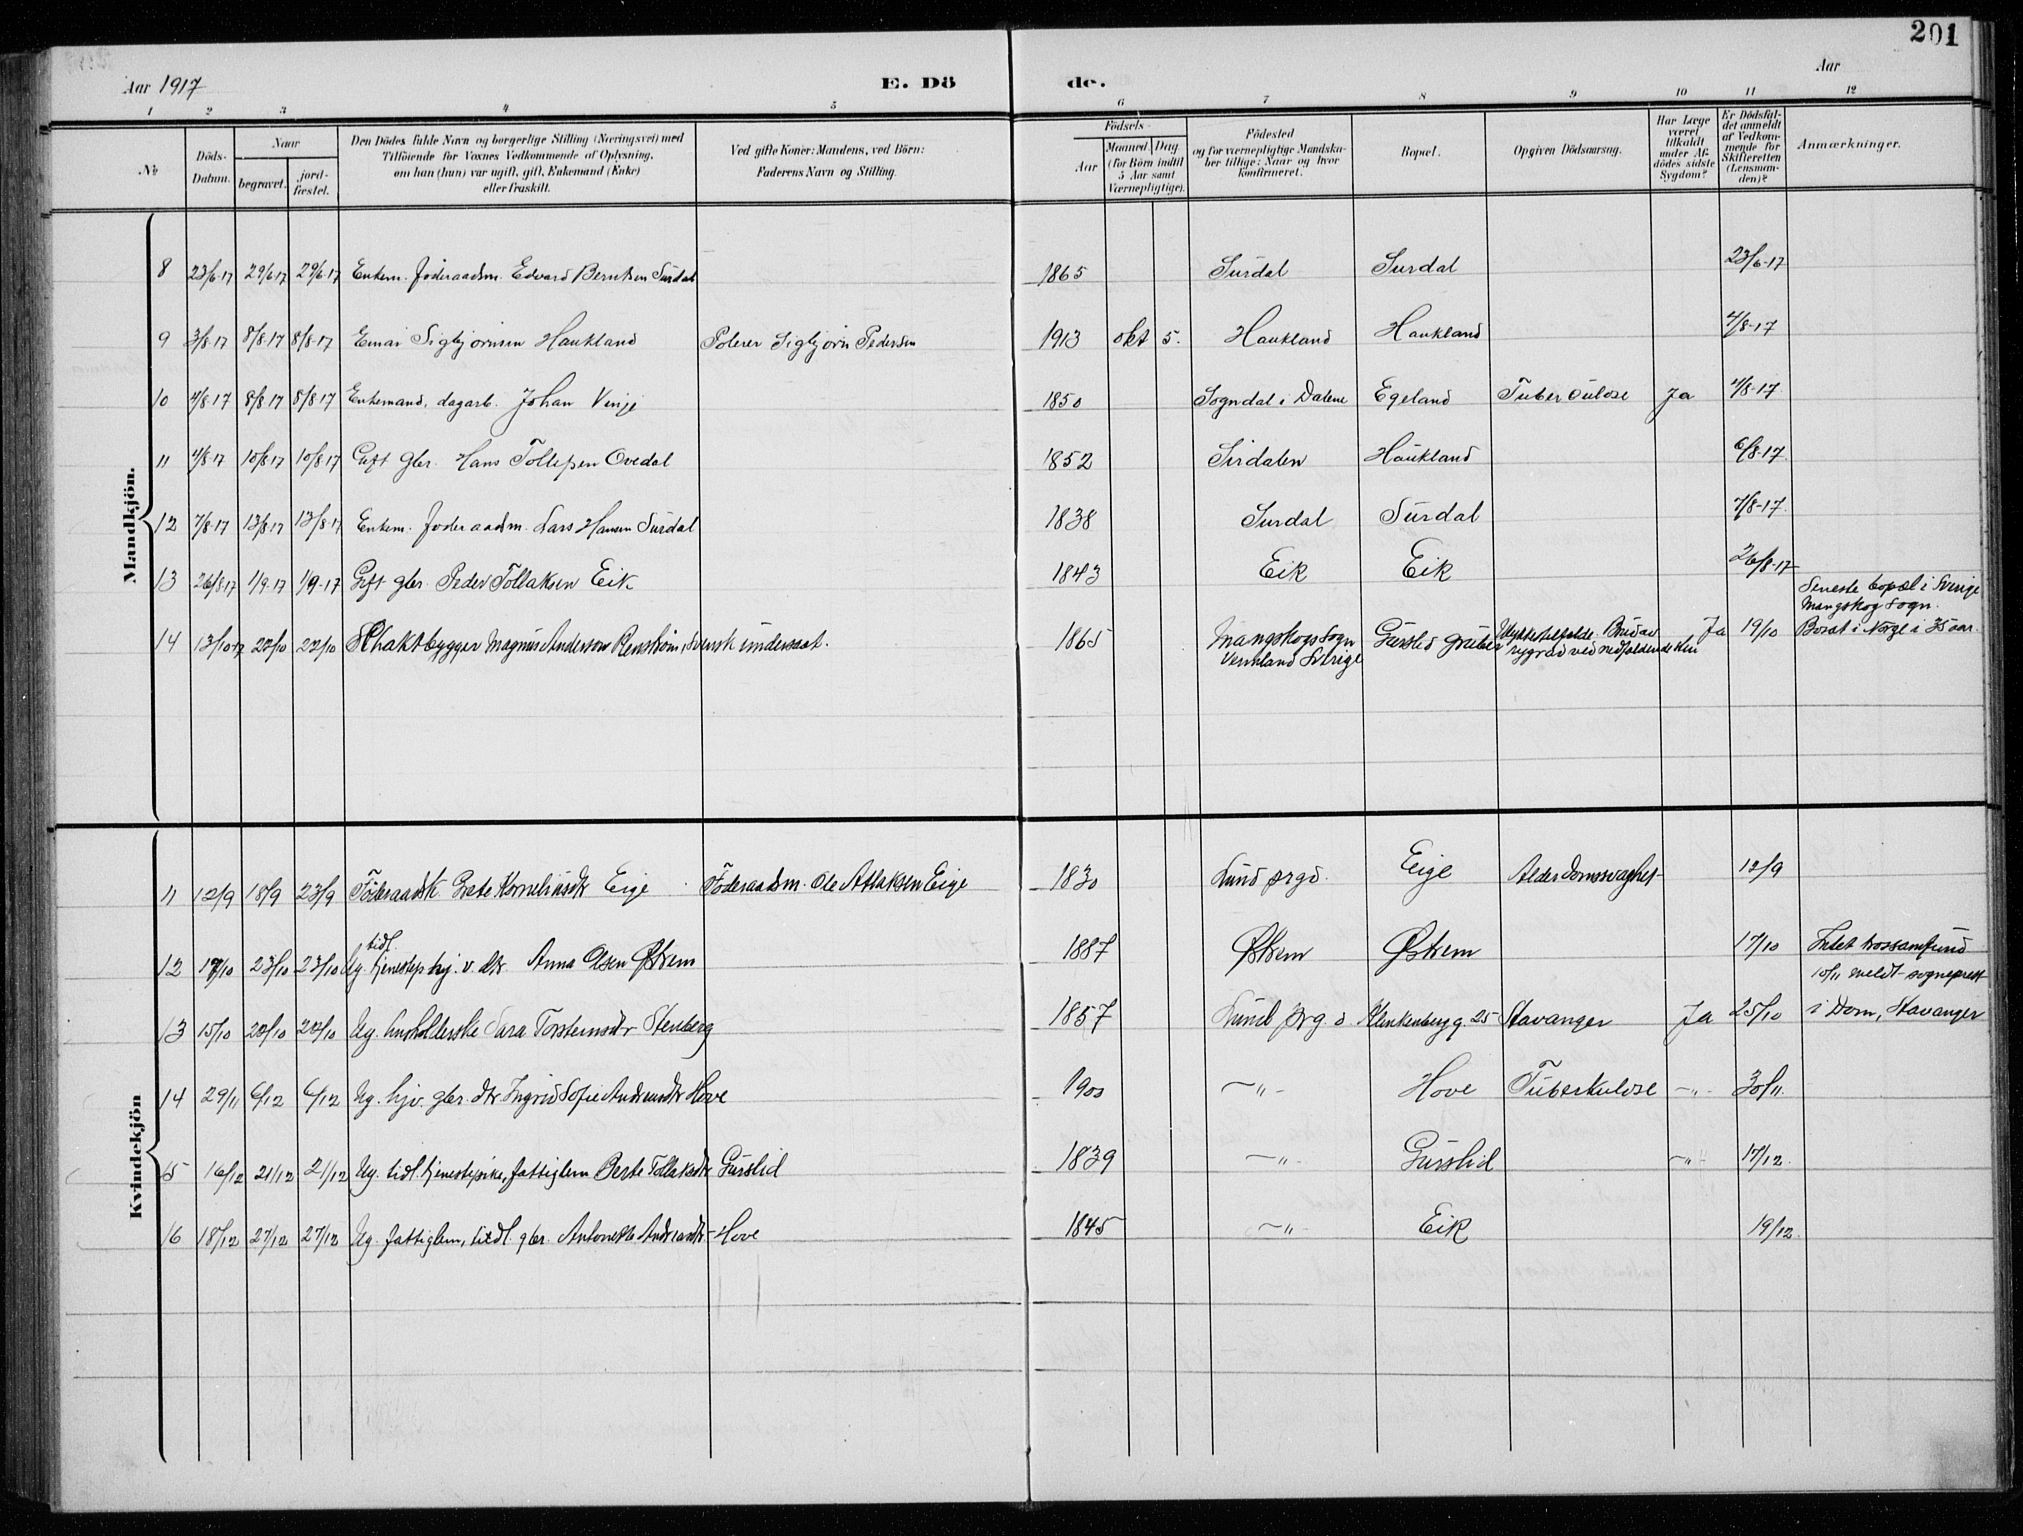 201
Aar 1917 E. Dö de. Aar
1 2 3 4 5 6 7 8 9 10 11 12
No
Döds-Datum.
Naar
begravet.
jord-fæstet.
Den Dödes fulde Navn og borgerlige Stilling (Næringsvei) med
Tilföiende for Voxnes Vedkommende af Oplysning,
om han (hun) var ugift, gift, Enkemand (Enke)
eller fraskilt.
Ved gifte Koner: Mandens, ved Börn:
Faderens Navn og Stilling.
Födsels-
Aar
Maaned. Dag
(for Börn indtil
5 Aar samt
Værnepligtige).
Födested
og for værnepligtige Mandska-
ber tillige: Naar og hvor
konfirmeret.
Bopæl.
Opgiven Dödsaarsag.
Har Læge
været
tilkaldt
under Af-
dödes sidste
Sygdom?
Er Dödsfal-
det anmeldt
af Vedkom-
mende for
Skifteretten
(Lensman-
den)?
Anmærkninger.
Mandkjön.
8 23/6-17 29/6 17 29/6-17 Enkem. föderaadsm. Edvard Berntsen Surdal 1865 Surdal Surdal 23/6-17
9 3/8-17 8/8-17 8/8-17 Einar Sigbjørnsen Haukland Polerer Sigbjørn Pedersen 1913 okt 5. Haukland Haukland 4/8-17
10 4/8-17 8/8 17 8/8 17 Enkemand, dagarb. Johan Vinje 1850 Sogndal i Dalene Egeland Tuberculose Ja 4/8-17
11 4/8 17 10/8-17 10/8-17 Gift gbr. Hans Tollefsen Ovedal 1852 Sirdalen Haukland 6/8-17.
12 7/8-17 13/8-17 13/8-17 Enkem. föderaadsm. Lars Hansen Surdal 1838 Surdal Surdal 7/8-17.
13 26/8-17 1/9-17 1/9-17 Gift gbr. Peder Tollaksen Eik 1843 Eik Eik 26/8-17
Seneste bopæl i Sverige
Mangskog sogn.
14 13/10-17 20/10 20/10 Schaktbygger Magnus Anderson Renstrøm, Svensk undersaat. 1865 Mangskogs sogn Gurslid gruber Ulykkestilfælde. Brud av Ja 19/10 Bosat i Norge i 35 aar.
Vermland Sverige rygrad ved nedfaldende sten
Kvindekjön
11 12/9 18/9 23/9 Föderaadsk Grete Korneliusdtr Eige Föderaadsm. Ole Atlaksen Eige 1830 Lund prgd. Eige Alderdomssvaghet 12/9
tidl.
12 17/10 23/10 23/10 Ug. tjenestep hj. v. dtr Anna Olsen Østrem 1887 Østrem Østrem 17/10 Intet trossamfund
10/11 meldt sogneprest
13 15/10 20/10 20/10 Ug. husholderske Sara Torsteinsdtr Stenberg 1857 Lund prg d Klinkenberg g. 25 Stavanger Ja 25/10 i Dom, Stavanger
14 29/11 6/12 6/12 Ug. hjv. gbr. dtr Ingrid Sofie Andreasdtr Hove 1900 -"- Hove Tuberkulose -"- 30/11.
15 16/12 21/12 21/12 Ug. tidl. tjenestepike, fattiglem Berte Tollaksdtr Gurslid 1839 -"- Gurslid -"- 17/12.
16 18/12 27/12 27/12 Ug. fattiglem, tidl. gbr. Antonette Andreasdtr- Hove 1845 -"- Eik 19/12.